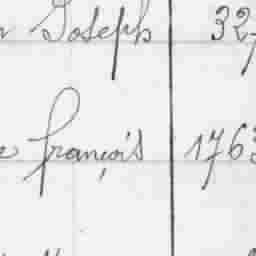 Joseph 32
françois 1763